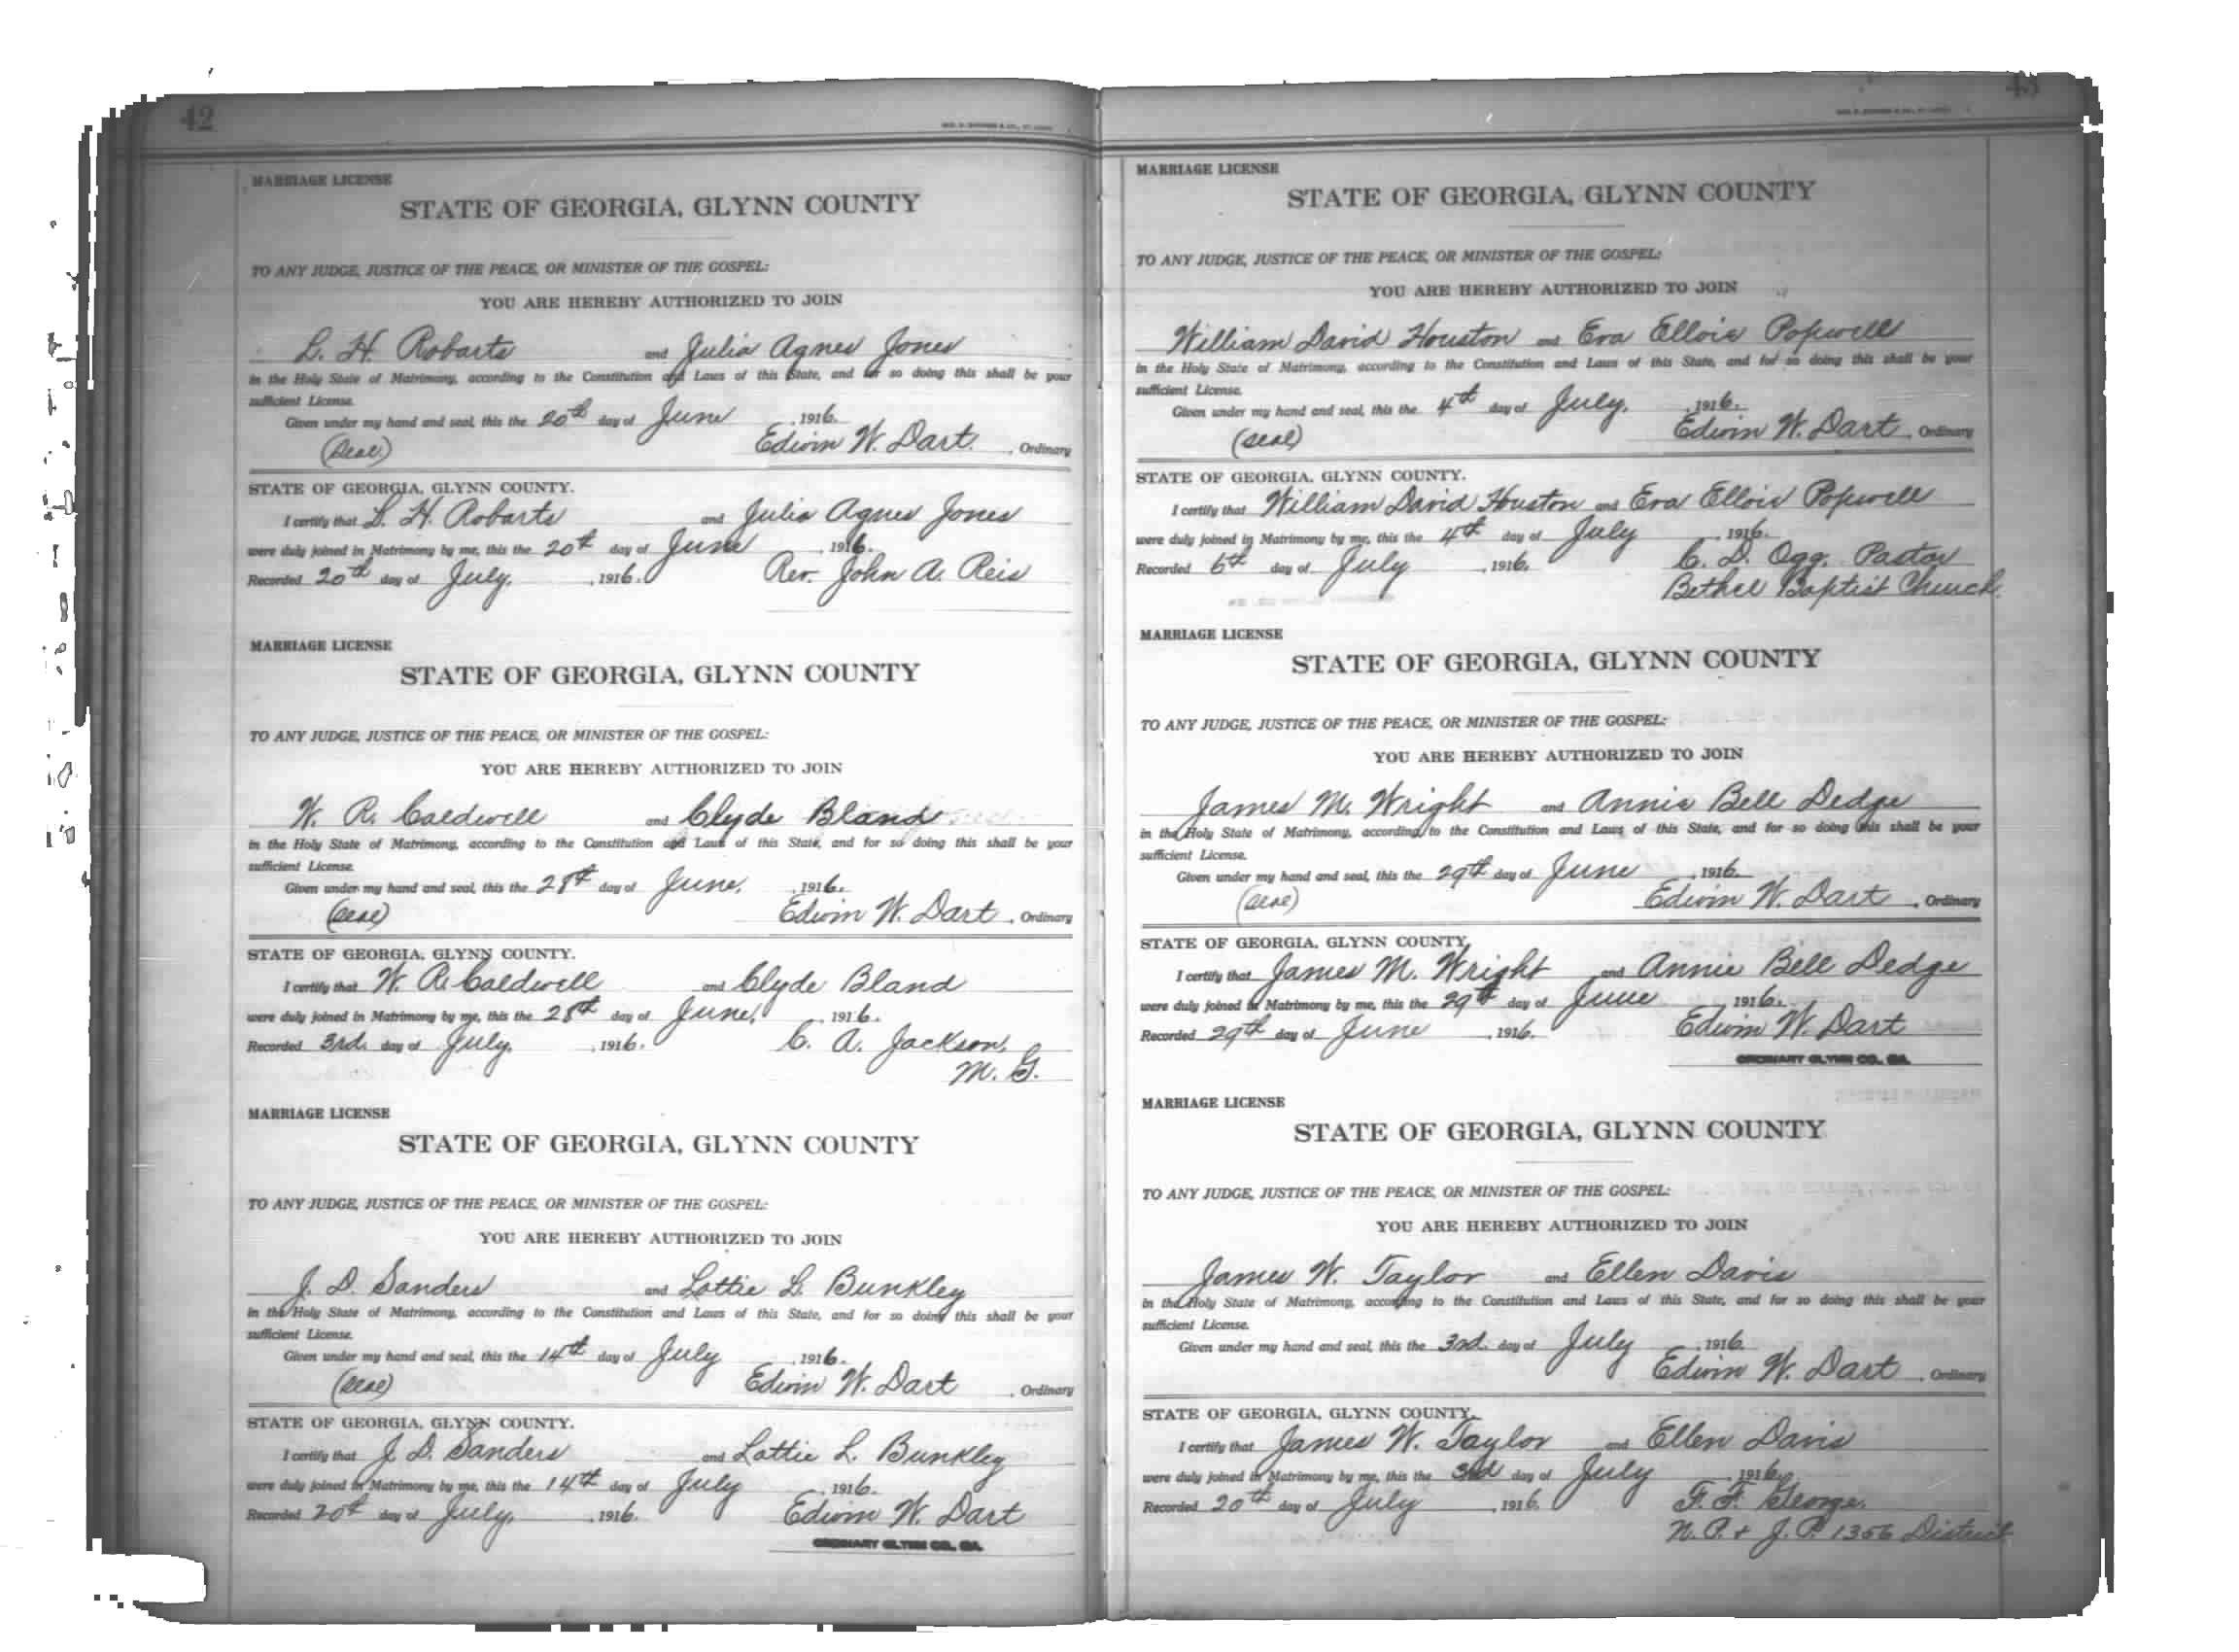 42
MARRIAGE LICENSE
STATE OF GEORGIA, GLYNN COUNTY
TO ANY JUDGE, JUSTICE OF THE PEACE, OR MINISTER OF THE GOSPEL:
YOU ARE HEREBY AUTHORIZED TO JOIN
L. H. Robarts and Julia Agnes Jones
in the Holy State of Matrimony, according to the Constitution and Laws of this State, and for so doing this shall be your
sufficient License.
Given under my hand and seal, this the 20th day of June, 1916.
(Seal) Edwin W. Dart, Ordinary
STATE OF GEORGIA, GLYNN COUNTY.
I certify that L. H. Robarts and Julia Agnes Jones
were duly joined in Matrimony by me, this the 20th day of June, 1916.
Recorded 20th day of July, 1916. Rev. John A. Reis
MARRIAGE LICENSE
STATE OF GEORGIA, GLYNN COUNTY
TO ANY JUDGE, JUSTICE OF THE PEACE, OR MINISTER OF THE GOSPEL:
YOU ARE HEREBY AUTHORIZED TO JOIN
W. R. Caldwell and Clyde Bland
in the Holy State of Matrimony, according to the Constitution and Laws of this State, and for so doing this shall be your
sufficient License.
Given under my hand and seal, this the 28th day of June, 1916.
(Seal) Edwin W. Dart, Ordinary
STATE OF GEORGIA, GLYNN COUNTY.
I certify that W. R. Caldwell and Clyde Bland
were duly joined in Matrimony by me, this the 28th day of June, 1916.
Recorded 3rd. day of July, 1916. C. A. Jackson,
M. G.
MARRIAGE LICENSE
STATE OF GEORGIA, GLYNN COUNTY
TO ANY JUDGE, JUSTICE OF THE PEACE, OR MINISTER OF THE GOSPEL:
YOU ARE HEREBY AUTHORIZED TO JOIN
J. D. Sanders and Lottie L. Bunkley
in the Holy State of Matrimony, according to the Constitution and Laws of this State, and for so doing this shall be your
sufficient License.
Given under my hand and seal, this the 14th day of July, 1916.
(Seal) Edwin W. Dart, Ordinary
STATE OF GEORGIA, GLYNN COUNTY.
I certify that J. D. Sanders and Lottie L. Bunkley
were duly joined in Matrimony by me, this the 14th day of July, 1916.
Recorded 20th day of July, 1916. Edwin W. Dart
ORDINARY GLYNN CO., GA.
43
MARRIAGE LICENSE
STATE OF GEORGIA, GLYNN COUNTY
TO ANY JUDGE, JUSTICE OF THE PEACE, OR MINISTER OF THE GOSPEL:
YOU ARE HEREBY AUTHORIZED TO JOIN
William David Houston and Eva Ellois Popwell
in the Holy State of Matrimony, according to the Constitution and Laws of this State, and for so doing this shall be your
sufficient License.
Given under my hand and seal, this the 4th day of July, 1916.
(Seal) Edwin W. Dart, Ordinary
STATE OF GEORGIA, GLYNN COUNTY.
I certify that William David Houston and Eva Ellois Popwell
were duly joined in Matrimony by me, this the 4th day of July, 1916.
Recorded 6th day of July, 1916. C. D. Ogg. Pastor
Bethel Baptist Church.
MARRIAGE LICENSE
STATE OF GEORGIA, GLYNN COUNTY
TO ANY JUDGE, JUSTICE OF THE PEACE, OR MINISTER OF THE GOSPEL:
YOU ARE HEREBY AUTHORIZED TO JOIN
James M. Wright and Annie Bell Dedge
in the Holy State of Matrimony, according to the Constitution and Laws of this State, and for so doing this shall be your
sufficient License.
Given under my hand and seal, this the 29th day of June, 1916.
(Seal) Edwin W. Dart, Ordinary
STATE OF GEORGIA, GLYNN COUNTY,
I certify that James M. Wright and Annie Bell Dedge
were duly joined in Matrimony by me, this the 29th day of June, 1916.
Recorded 29th day of June, 1916. Edwin W. Dart
ORDINARY GLYNN CO., GA.
MARRIAGE LICENSE
STATE OF GEORGIA, GLYNN COUNTY
TO ANY JUDGE, JUSTICE OF THE PEACE, OR MINISTER OF THE GOSPEL:
YOU ARE HEREBY AUTHORIZED TO JOIN
James W. Taylor and Ellen Davis
in the Holy State of Matrimony, according to the Constitution and Laws of this State, and for so doing this shall be your
sufficient License.
Given under my hand and seal, this the 3rd. day of July, 1916
Edwin W. Dart, Ordinary
STATE OF GEORGIA, GLYNN COUNTY,
I certify that James W. Taylor and Ellen Davis
were duly joined in Matrimony by me, this the 3rd day of July, 1916.
Recorded 20th day of July, 1916. F. F. George.
N. P. & J. P. 1356 District